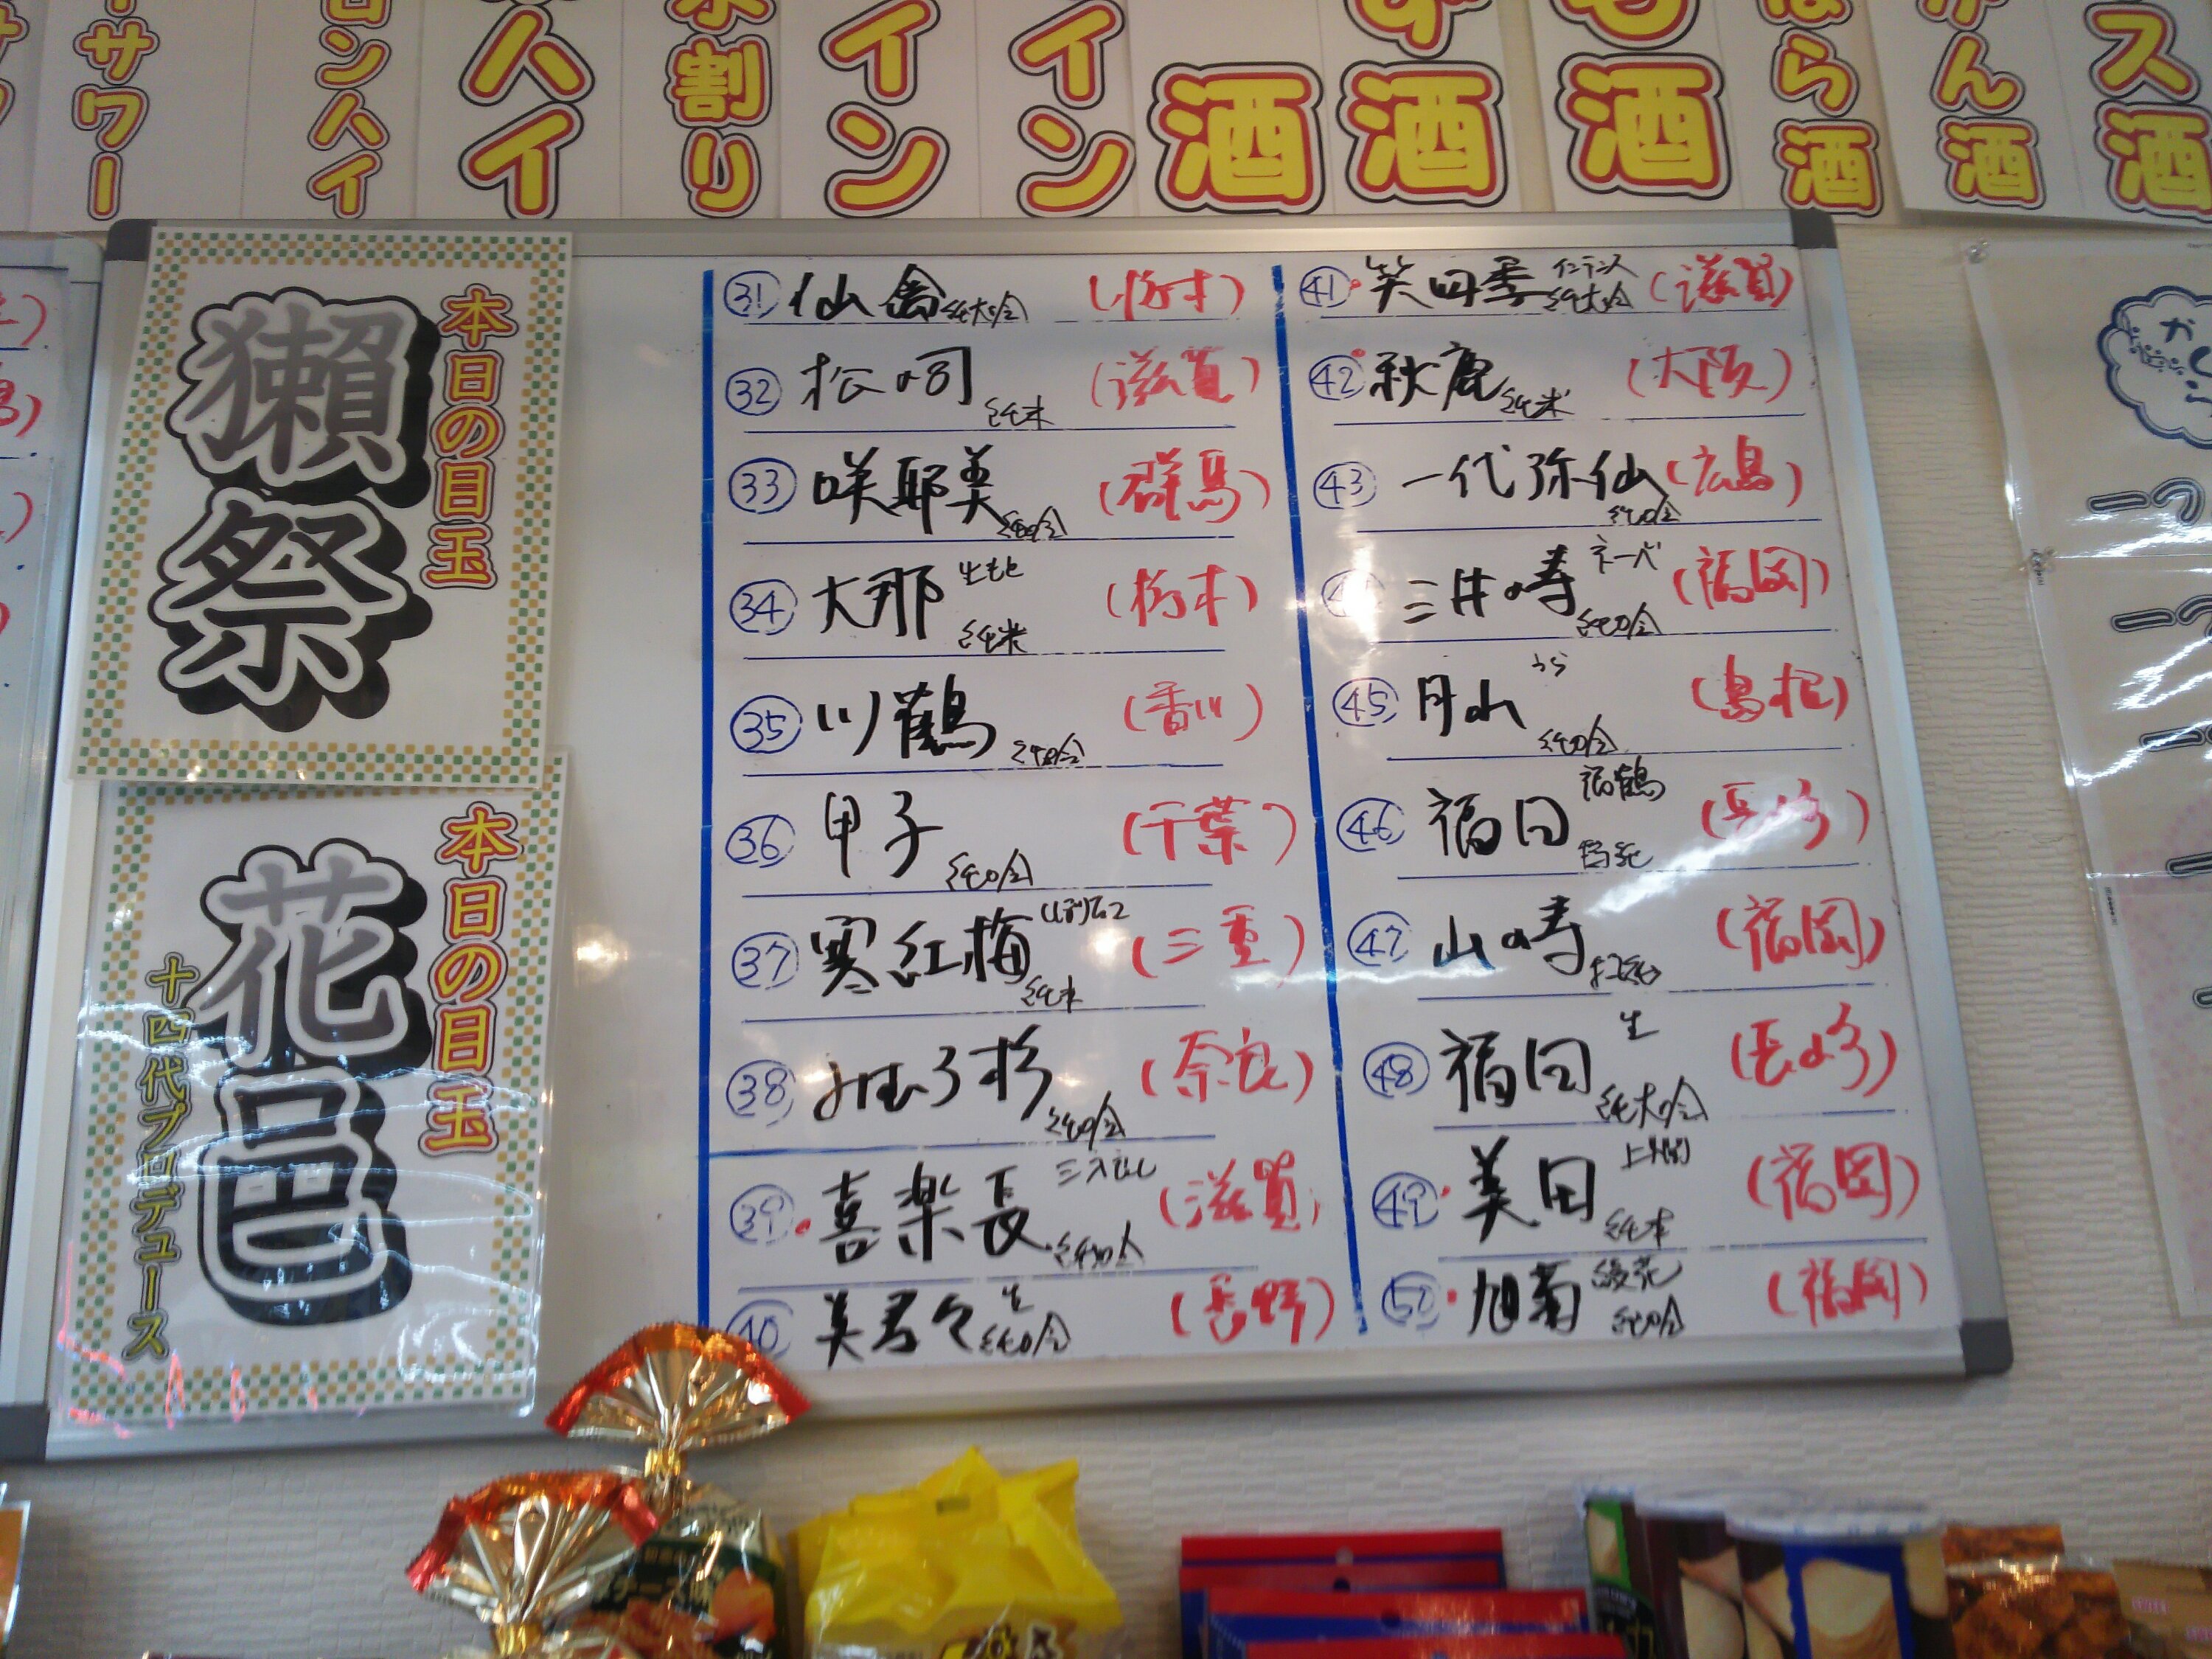 サワー
ンハイ
ハイ
水割り
イン
イン
酒
酒
酒
ばら酒
かん酒
ス酒
本日の目玉
獺祭
本日の目玉
花邑
十四代プロデュース
㉛ 仙禽 純大吟 (栃木)
㉜ 松の司 純米 (滋賀)
㉝ 咲耶美 純吟 (群馬)
㉞ 大那 生もと 純米 (栃木)
㉟ 川鶴 純吟 (香川)
㊱ 甲子 純吟 (千葉)
㊲ 寒紅梅 純米 (三重)
㊳ みむろ杉 純吟 (奈良)
㊴ 喜楽長 純吟 (滋賀)
㊵ 美寿々 生 純吟 (長野)
㊶ 笑四季 インテンス 純大吟 (滋賀)
㊷ 秋鹿 純米 (大阪)
㊸ 一代弥仙 純吟 (広島)
三井の寿 ネーベ 純吟 (福岡)
㊺ 月山 純吟 (島根)
㊻ 福田 福鶴 特純 (長崎)
㊼ 山の寿 (福岡)
㊽ 福田 生 純大吟 (長崎)
㊾ 美田 純米 (福岡)
旭菊 綾花 純吟 (福岡)